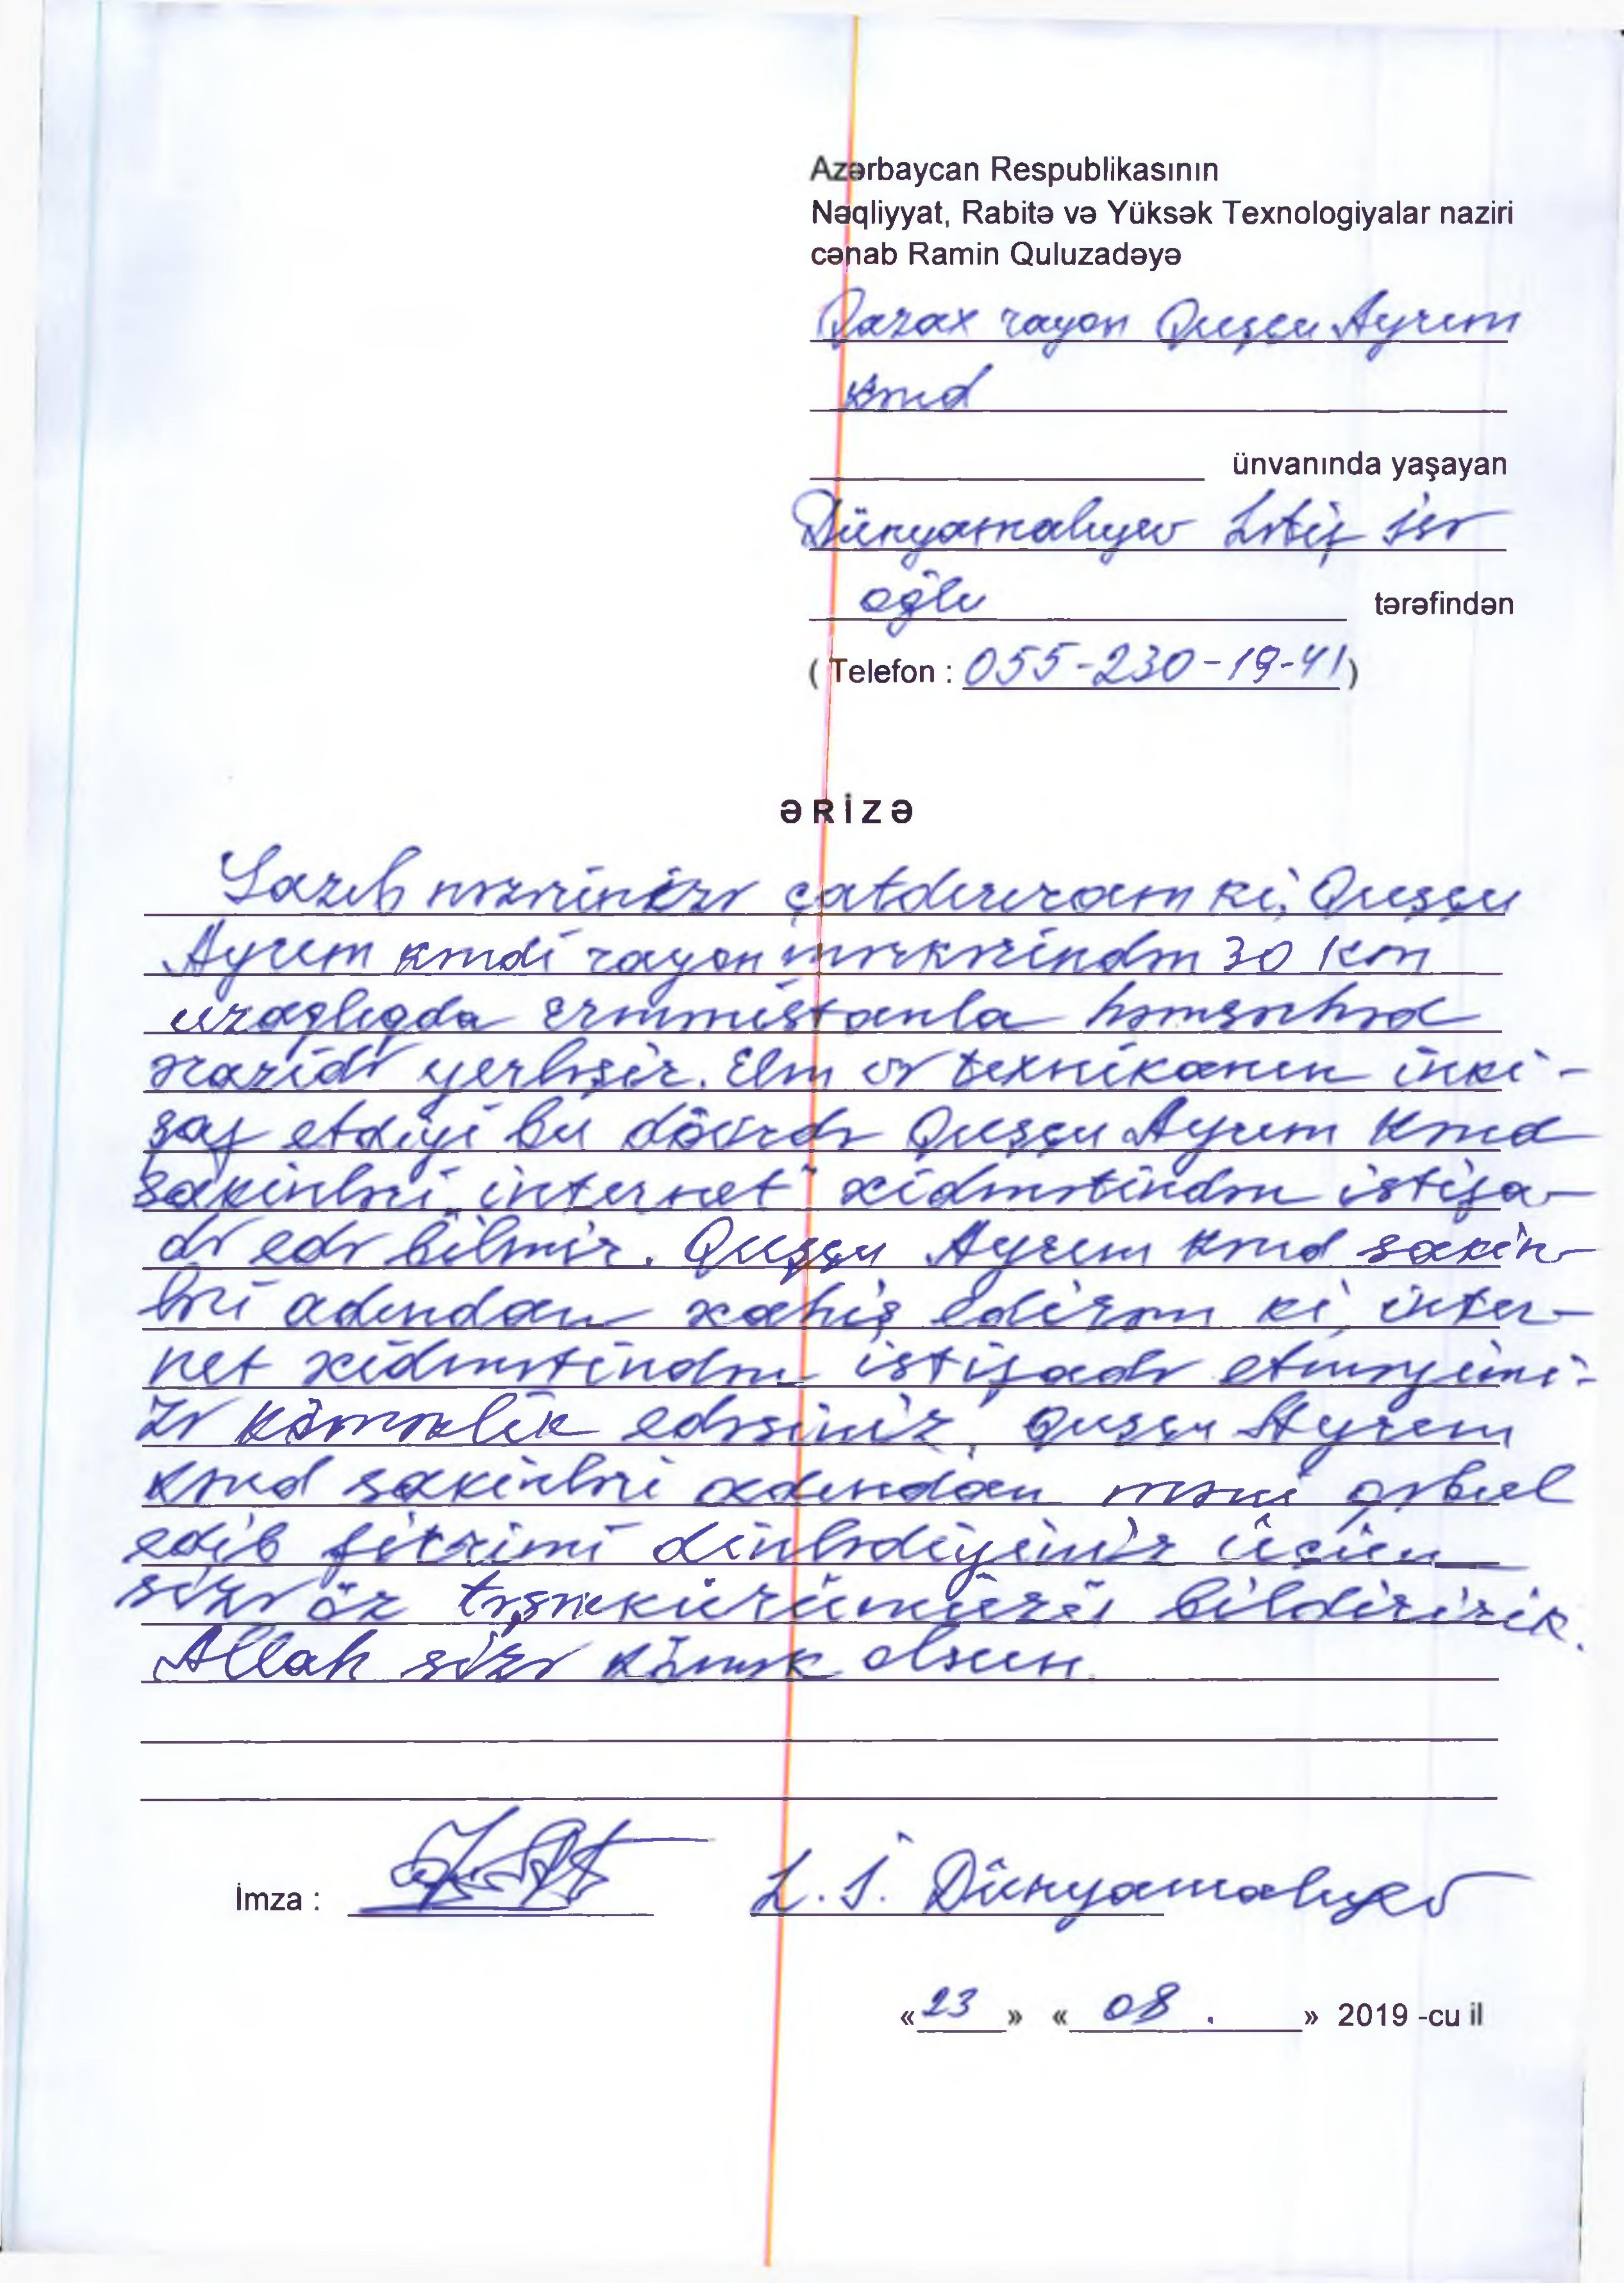 Azərbaycan Respublikasının
Nəqliyyat, Rabitə və Yüksək Texnologiyalar naziri
cənab Ramin Quluzadəyə
Qazax rayon Quşçu Ayrım
kənd
ünvanında yaşayan
Dünyamalıyev Lətif
oğlu tərəfindən
( Telefon : 055-230-19-41 )
ƏRİZƏ
nəzərinizə çatdırıram ki, Quşçu
Ayrım kəndi rayon mərkəzindən 30 km
uzaqlıqda Ermənistanla həmsərhəd
ərazidə yerləşir. Elm və texnikanın inki-
şaf etdiyi bu dövrdə Quşçu Ayrım kənd
sakinləri "internet" xidmətindən istifa-
də edə bilmir. Quşçu Ayrım kənd sakin-
ləri adından xahiş edirəm ki, inter-
net xidmətindən istifadə etməyimi-
zə köməklik edəsiniz, Quşçu Ayrım
kənd sakinləri adından məni qəbul
edib fikrimi dinlədiyiniz üçün
sizə öz təşəkkürümüzü bildiririk.
Allah sizə kömək olsun.
İmza : L. Ş. Dünyamalıyev
«23» «08.» 2019 -cu il